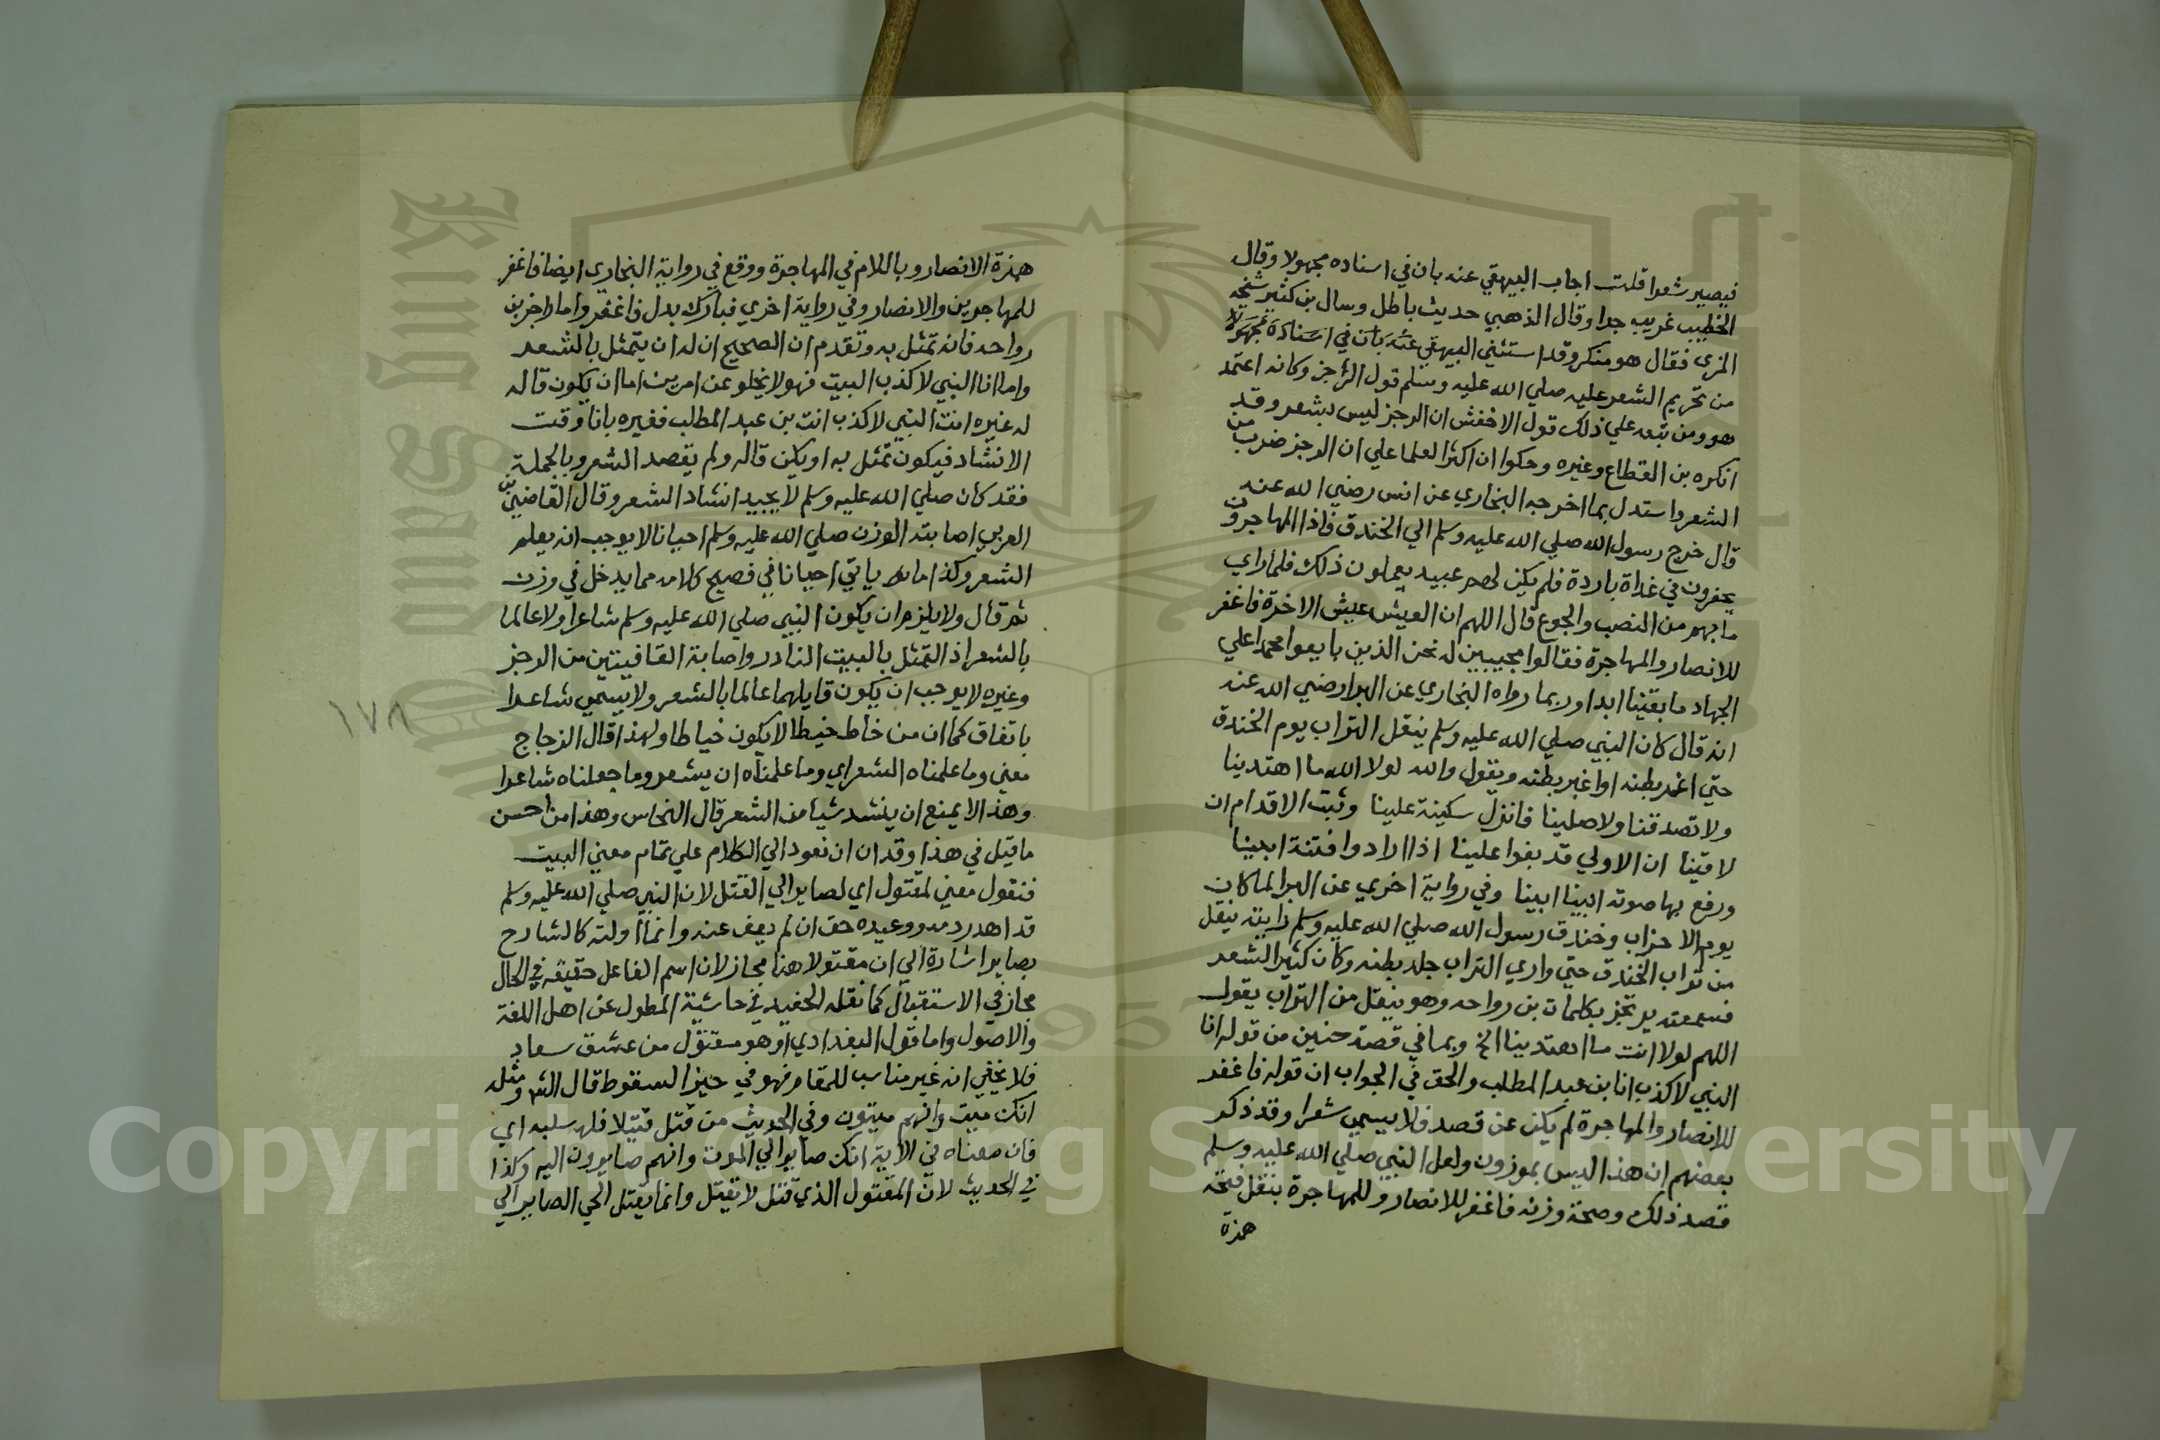 فيصير شعرا قلت اجاب البيهقي عنه بان في اسناده مجهولا وقال
الخطيب غريب جدا وقال الذهبي حديث باطل وسال بن كثير شيخه
المزي فقال هو منكر وقد استثني البيهقي عنه بان في اسناده مجهولا
من تحريم الشعر عليه صلي الله عليه وسلم قول الرجز وكانه اعتمد
هو ومن تبعه علي ذلك قول الاخفش ان الرجز ليس بشعر وقد
انكره بن القطاع وغيره وحكوا ان اكثر العلما علي ان الرجز ضرب من
الشعر واستدل بما اخرجه البخاري عن انس رضي الله عنه
قال خرج رسول الله صلي الله عليه وسلم الي الخندق فاذا المهاجرون
يحفرون في غداة باردة فلم يكن لهم عبيد يعملون ذلك فلما راي
ما بهم من النصب والجوع قال اللهم ان العيش عيش الاخرة فاغفر
للانصار والمهاجرة فقالوا مجيبين له نحن الذين بايعوا محمدا علي
الجهاد ما بقينا ابدا وربما رواه البخاري عن البرا رضي الله عنه
انه قال كان النبي صلي الله عليه وسلم ينقل التراب يوم الخندق
حتي اغمر بطنه او اغبر بطنه ويقول والله لولا الله ما اهتدينا
ولا تصدقنا ولا صلينا فانزل سكينة علينا وثبت الاقدام ان
لاقينا ان الاولي قد بغوا علينا اذا ارادوا فتنة ابينا
ورفع بها صوته ابينا ابينا وفي رواية اخري عن البرا لما كان
يوم الاحزاب وخندق رسول الله صلي الله عليه وسلم رايته ينقل
من تراب الخندق حتي واري التراب جلد بطنه وكان كثير الشعر
فسمعته يرتجز بكلمات بن رواحه وهو ينقل من التراب يقول
اللهم لولا انت ما اهتدينا الخ وبما في قصة حنين من قوله انا
النبي لا كذب انا بن عبد المطلب والحق في الجواب ان قوله فاغفر
للانصار والمهاجرة لم يكن عن قصد فلا يسمي شعرا وقد ذكر
بعضهم ان هذا ليس بموزون ولعل النبي صلي الله عليه وسلم
قصد ذلك وصحة وزنه فاغفر للانصار وللمهاجرة بنقل فتحة
همزة
همزة الانصار وباللام في المهاجرة ووقع في رواية البخاري ايضا فاغفر
للمهاجرين والانصار وفي رواية اخري فبارك بدل فاغفر واما رجز بن
رواحه فانه تمثل به وتقدم ان الصحيح ان له ان يتمثل بالشعر
واما انا النبي لا كذب البيت فهو لا يخلو عن امرين اما ان يكون قاله
له غيره انت النبي لا كذب انت بن عبد المطلب فغيره بانا وقت
الانشاد فيكون تمثل به او يكن قاله ولم يقصد الشعر وبالجملة
فقد كان صلي الله عليه وسلم لا يجيد انشاد الشعر وقال القاضي بن
العربي اصابته الوزن صلي الله عليه وسلم احيانا لا يوجب انه يعلم
الشعر وكذا ما ياتي احيانا في فصيح كلامه مما يدخل في وزن
ثم قال ولا يلزم ان يكون النبي صلي الله عليه وسلم شاعرا ولا عالما
بالشعر اذ التمثل بالبيت النادر واصابة القافيتين من الرجز
وغيره لا يوجب ان يكون قايلهما عالما بالشعر ولا يسمي شاعرا
باتفاق كما ان من خاط خيطا لا يكون خياطا ولهذا قال الزجاج
معني وما علمناه الشعر اي وما علمناه ان يشعر وما جعلناه شاعرا
وهذا لا يمنع ان ينشد شيا من الشعر قال النحاس وهذا من احسن
ما قيل في هذا وقد ان ان نعود الي الكلام علي تمام معني البيت
فنقول معني لمقتول اي لصاير الي القتل لان النبي صلي الله عليه وسلم
قد اهدر دمه ووعيده حق ان لم يعف عنه وانما اولته كالشارح
بصاير اشارة الي ان مقتولا هنا مجاز لان اسم الفاعل حقيقه في الحال
مجاز في الاستقبال كما نقله الحفيد في حاشية المطول عن اهل اللغة
والاصول واما قول البغدادي او هو مقتول من عشق سعاد
فلا يخفي انه غير مناسب للمقام فهو في حيز السقوط قال الش ومثله
انك ميت وانهم ميتون وفي الحديث من قتل قتيلا فله سلبه اي
فان معناه في الاية انك صاير الي الموت وانهم صايرون اليه وكذا
في الحديث لان المقتول الذي قتل لا يقتل وانما يقتل الحي الصاير الي
١٧٨
King Saud University
1957
Copyright © King Saud University